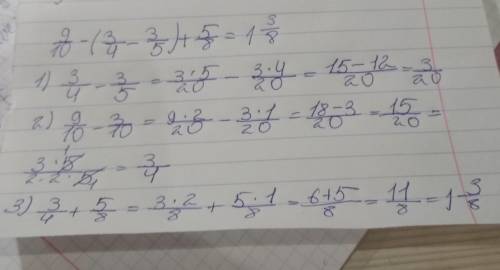 9/10 - (3/4 - 3/5) + 5/8 = 1 3/8
1) 3/4 - 3/5 = 3·5/20 - 3·4/20 = 15-12/20 = 3/20
2) 9/10 - 3/10 = 9·2/20 - 3·1/20 = 18-3/20 = 15/20 =
3·5 1/2·2·5 1 = 3/4
3) 3/4 + 5/8 = 3·2/8 + 5·1/8 = 6+5/8 = 11/8 = 1 3/8